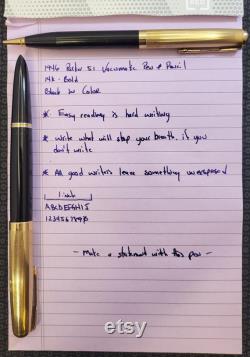 1946 Parker 51 Vacumatic Pen & Pencil
14K - Bold
Black in Color
* Easy reading is hard writing
* Write what will stop your breath if you
don't write
* All good writers leave something unexposed
1 inch
ABCDEFGHIJ
1234567890
- Make a statement with this pen -
Etsy